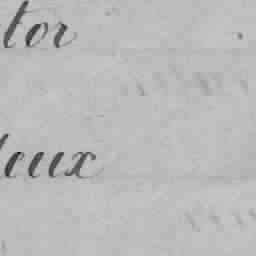 tor
deux